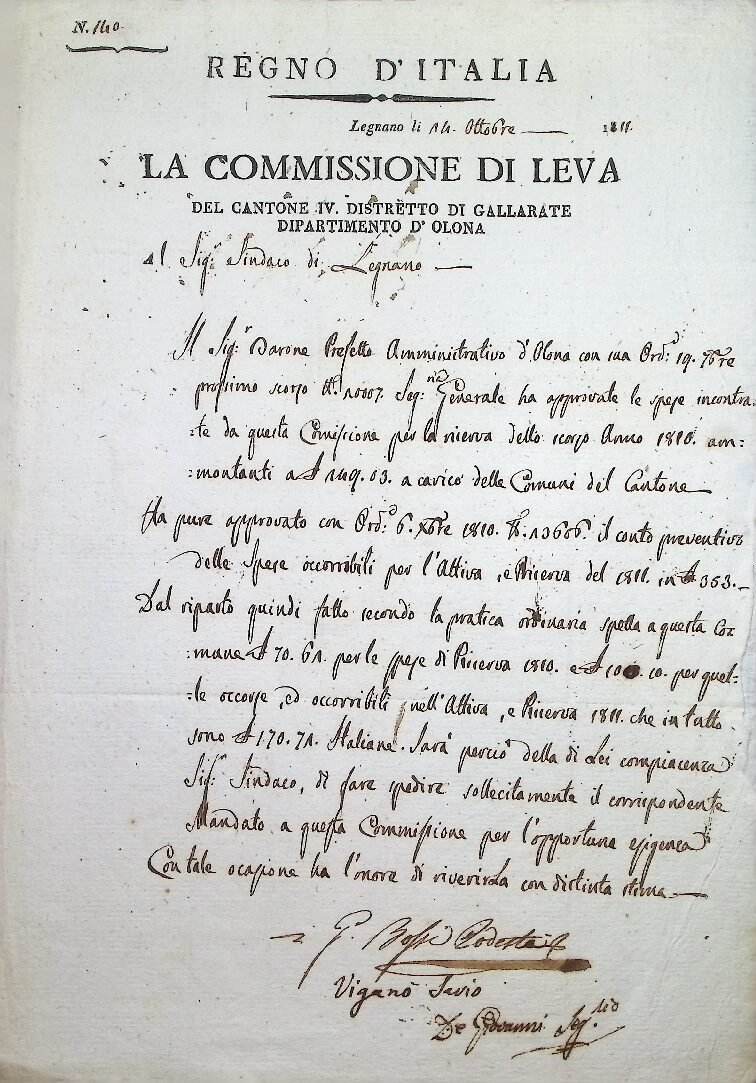 N. 140.
REGNO D'ITALIA
Legnano li 14. Ottobre 1811.
LA COMMISSIONE DI LEVA
DEL CANTONE IV. DISTRETTO DI GALLARATE
DIPARTIMENTO D'OLONA
Al Sig.r Sindaco di Legnano
Il Sig.r Barone Prefetto Amministrativo d'Olona con sua Ord.a 19. 7bre
prossimo scorso N. 10007. Seg.ria Generale ha approvate le spese incontra-
:te da questa Comissione per la riserva dello scorso Anno 1810. am-
:montanti a £ 149.03. a carico delle Comuni del Cantone
Ha pure approvato con Ord.a 6. Xbre 1810. N. 13606. il conto preventivo
delle Spese occorribili per l'Attiva, e Riserva del 1811. in £ 353.
Dal riparto quindi fatto secondo la pratica ordinaria spetta a questa Co-
:mune £ 70.61. per le spese di Riserva 1810. e £ 100.10. per quel-
:le occorse, ed occorribili nell'Attiva, e Riserva 1811. che in tutto
sono £ 170.71. Italiane. Sarà perciò della di Lei compiacenza
Sig.r Sindaco, di fare spedire sollecitamente il corrispondente
Mandato a questa Commissione per l'opportuna esigenza
Con tale ocasione ha l'onore di riverirla con distinta stima
Bossi Podestà
Viganò Savio
De Giovanni Seg.rio